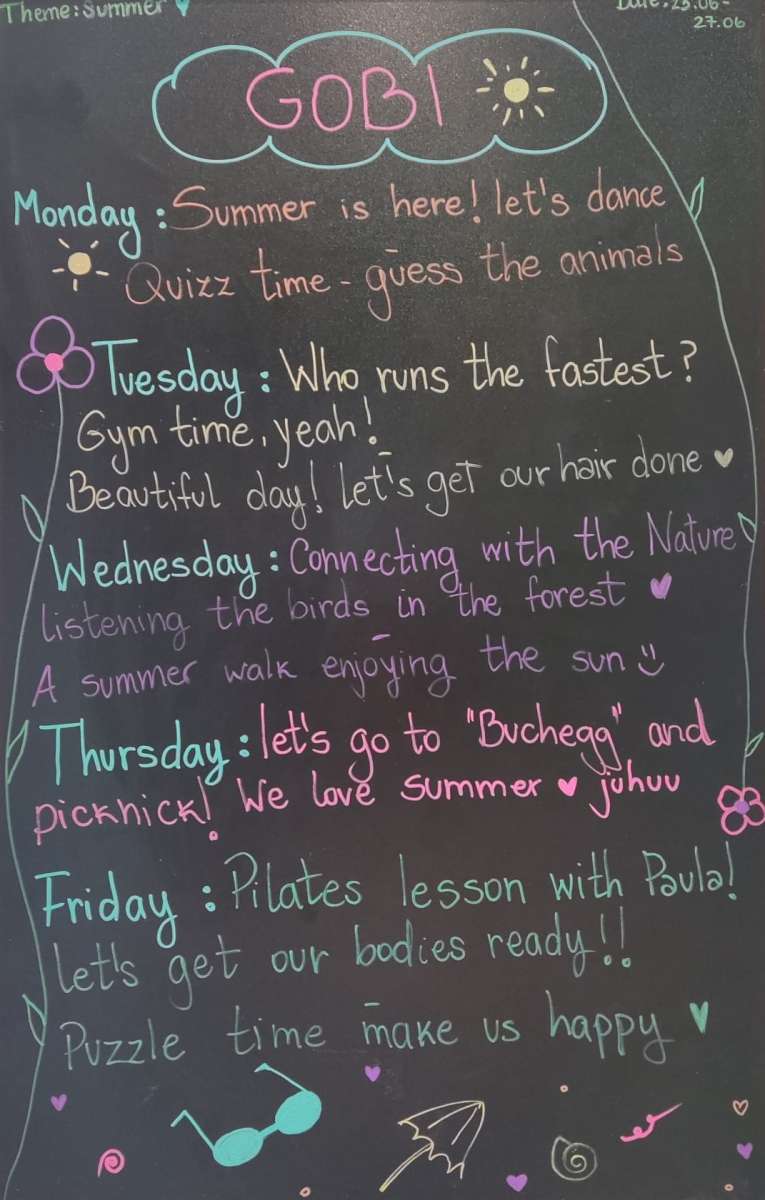 Theme: Summer
Date: 23.06-
27.06
GOBI
Monday: Summer is here! let's dance
Quizz time - guess the animals
Tuesday: Who runs the fastest?
Gym time, yeah!
Beautiful day! Let's get our hair done
Wednesday: Connecting with the Nature
listening the birds in the forest
A summer walk enjoying the sun
Thursday: let's go to "Buchegg" and
picknick! We love summer juhuu
Friday: Pilates lesson with Paula!
Let's get our bodies ready!!
Puzzle time make us happy